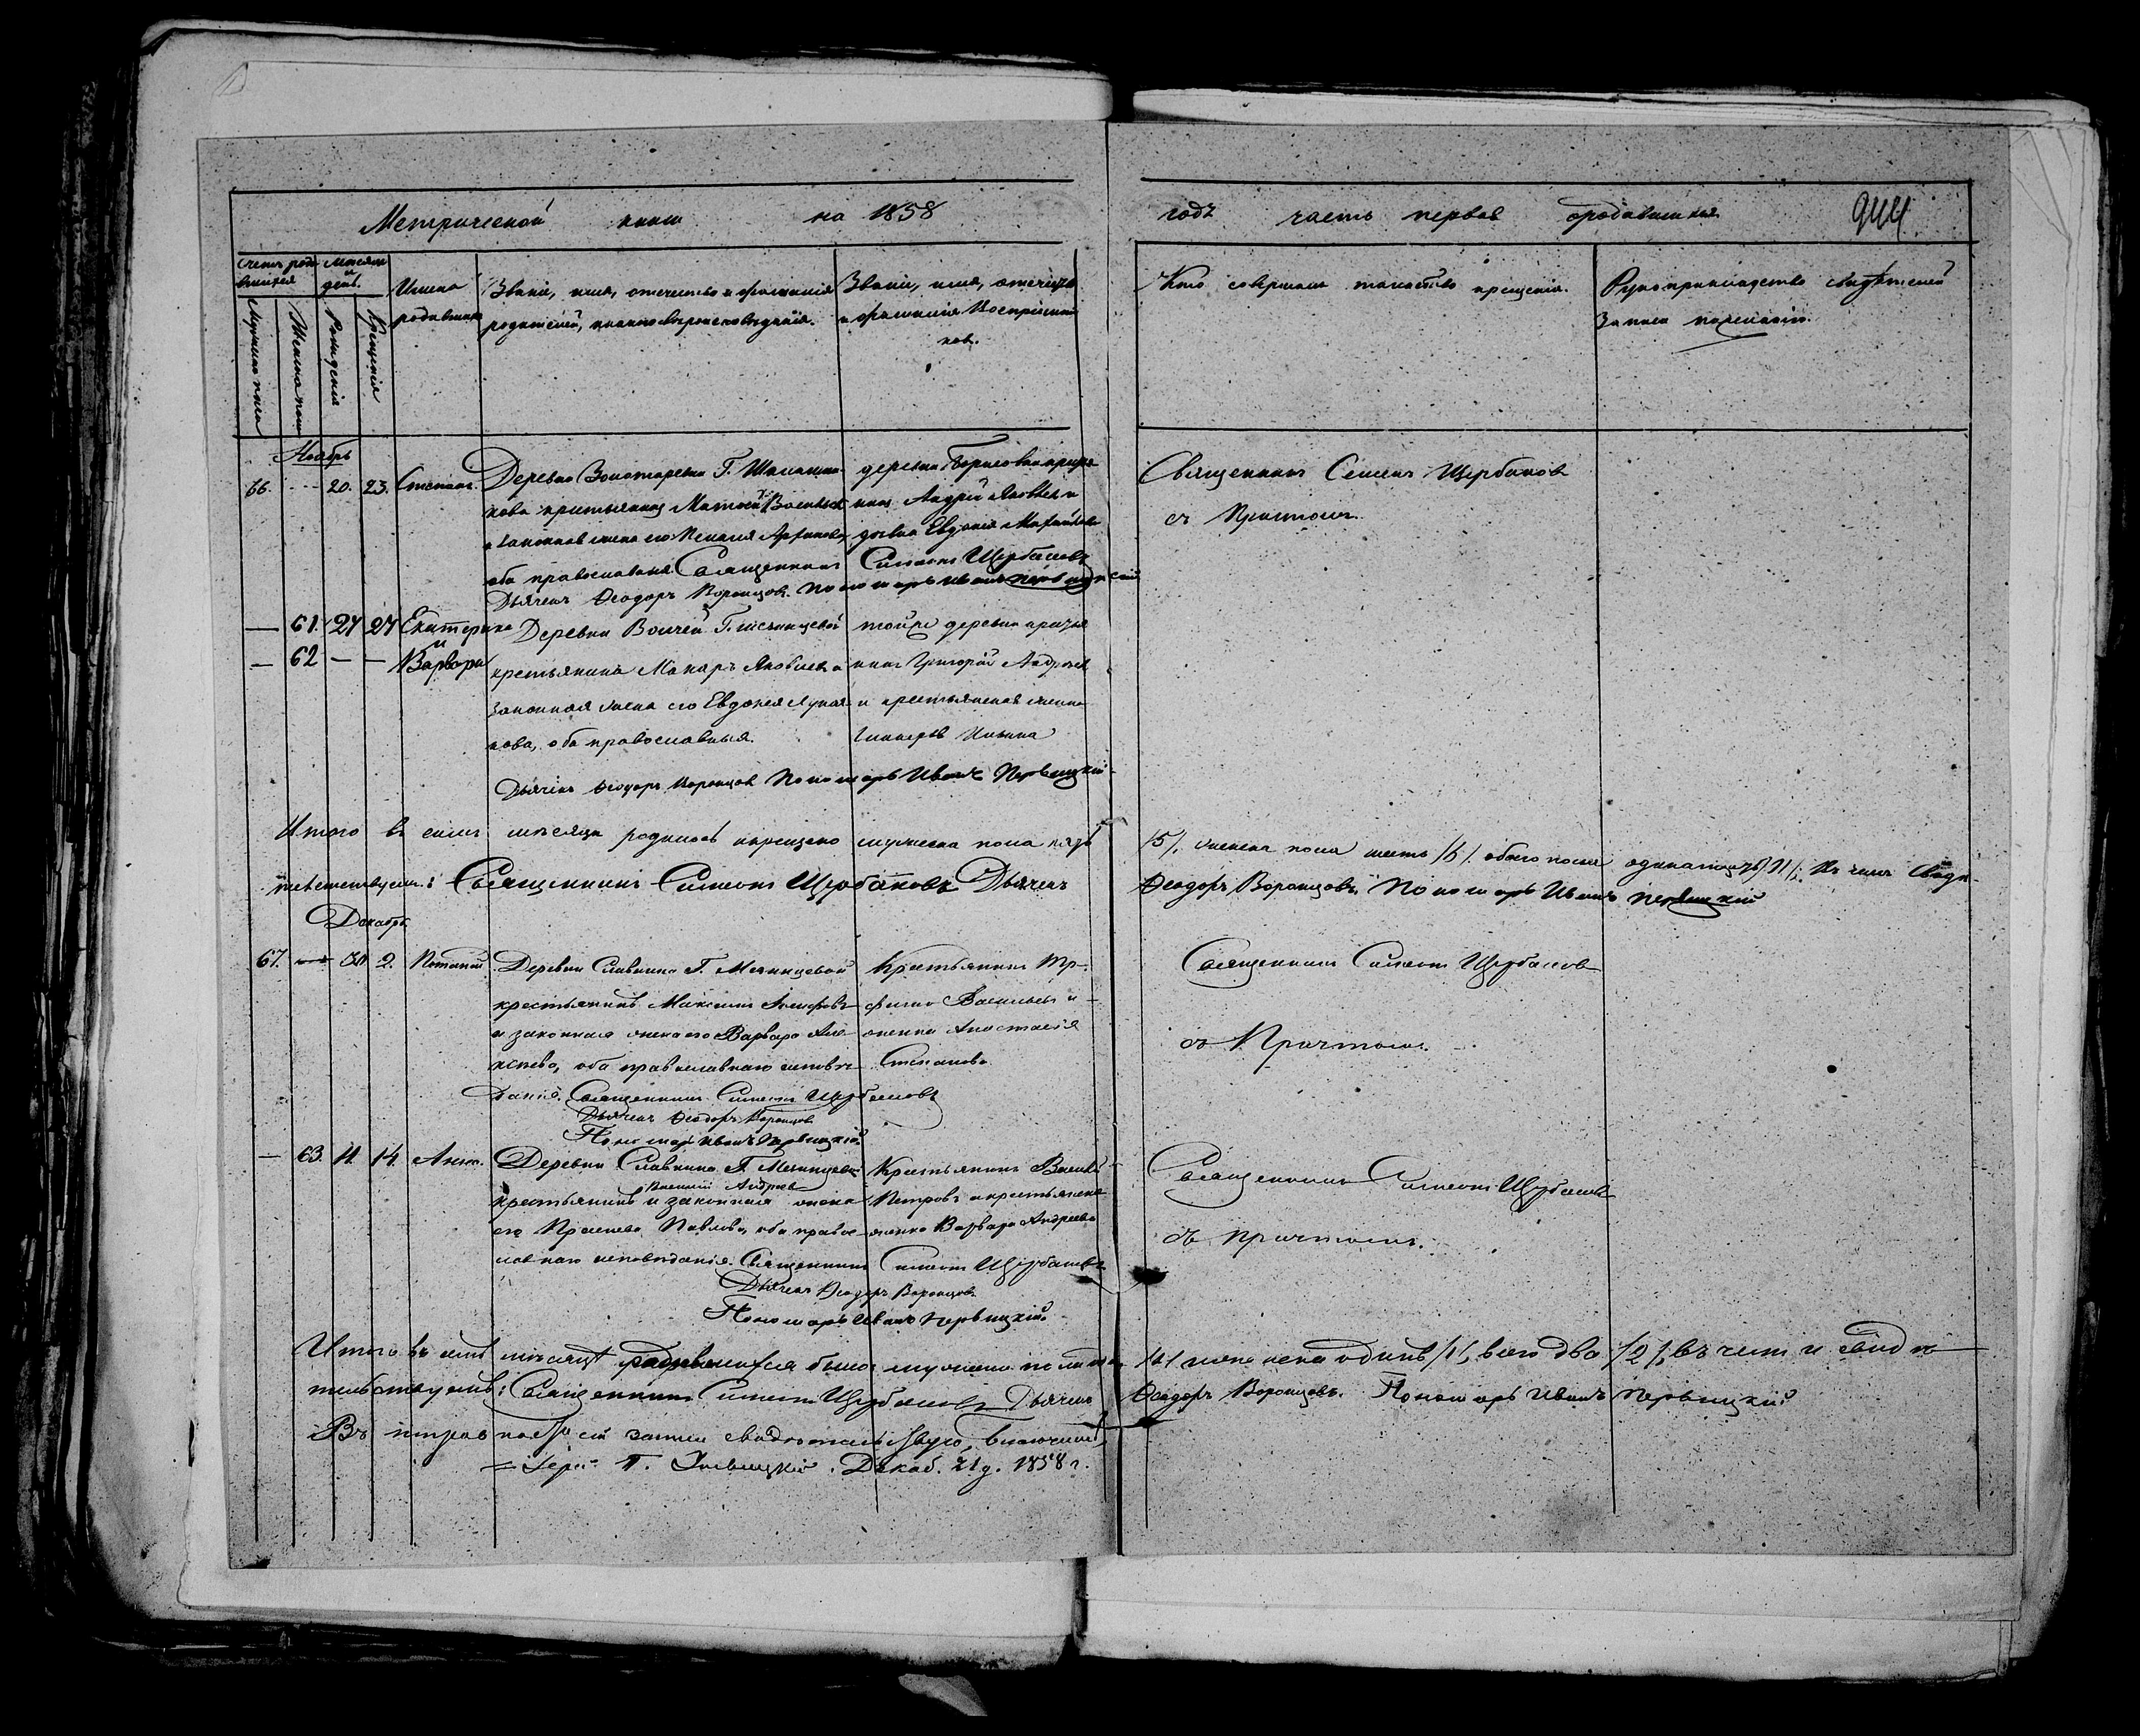 Метрической книги на 1858
годъ часть первая о родившихся
944
Счетъ родившихся
Мѣсяцъ и день
Мужеска пола
Женска пола
Рожденія
Крещенія
Имена родившихся
Званіе, имя, отечество и фамилія
родителей, и какого вѣроисповѣданія.
Званіе, имя, отечество
и фамилія Воспріемни
ков.
Кто совершалъ таинство крещенія.
Рукоприкладство свидѣтелей
записи по желанію.
Ноябрь
66. 20. 23. Степанъ. Деревни Золотаревки Г.
крестьянинъ Матѳей Васильевъ
и законная жена его Пелагія
оба православныя. Священникъ Симеонъ Щербаковъ
Дьячекъ Ѳеодоръ Воронцовъ. Пономарь Иванъ Первицкій
деревни Борисовки крестья
нинъ Андрей Яковлевъ и
девка Евдокія Михайлова
Священникъ Семенъ Щербаковъ
съ Причтомъ.
61. 27 27 Екатерина
и
62 — — Варвара
Деревни Волчей Г.
крестьянинъ Макаръ Яковлевъ и
законная жена его Евдокея Лукья
нова, оба православныя.
тойже деревни крестья
нинъ Григорій Андреевъ
и крестьянская женка
Гликерья Ильина
Дьячекъ Ѳеодоръ Воронцовъ Пономарь Иванъ Первицкій
Итого въ семъ мѣсяцѣ родилось и крещено мужеска пола пять
/5/, женска пола шесть /6/. обоего пола одинадцать /11/; въ чемъ свидѣ-
тельствуемъ: Священникъ Симеонъ Щербаковъ Дьячекъ
Ѳеодоръ Воронцовъ. Пономарь Иванъ Первицкій
Декабрь
67. 2. Потапій Деревни Славкина Г. Мечнцевой
крестьянинъ Максимъ
и законная жена его Варвара Але
ксѣева, оба православнаго исповѣ
данія. Священникъ Симеонъ Щербаковъ
Дьячекъ Ѳеодоръ Воронцовъ
Пономарь Иванъ Первицкій.
Крестьянинъ Тр-
фимъ Васильевъ и
женка Анастасія
Степанова
Священникъ Симеонъ Щербаковъ
съ Причтомъ.
— 63. 11. 14. Анна. Деревни Славкина Г. Мечнцевой
Василий Андреев
крестьянинъ и законная жена
его Прасковья Павлова, оба правос
лавнаго исповѣданія. Священникъ Симеонъ Щербаковъ
Дьячекъ Ѳеодоръ Воронцовъ
Пономарь Иванъ Первицкій.
Крестьянинъ Василій
Петровъ и крестьянская
женка Варвара Андреева
Священникъ Симеонъ Щербаковъ
съ причтомъ.
Итого въ семъ мѣсяцѣ родившихся было: мужеска пола одинъ
/1/ женска одинъ /1/, всего два /2/, въ чемъ и свидѣ
тельствуемъ: Священникъ Симеонъ Щербаковъ Дьячекъ
Ѳеодоръ Воронцовъ. Пономарь Иванъ Первицкій
Въ исправности сей записи свидѣтельствую,
Декаб. 21 д. 1858 г.